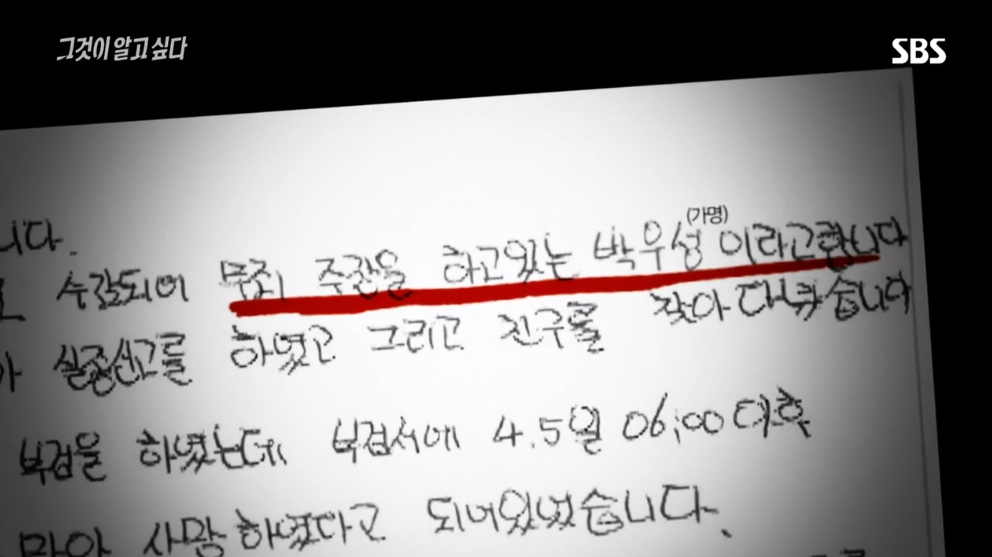 그것이 알고싶다
SBS
니다.
(가명)
수감되어 무죄 주장을 하고있는 박우성 이라고합니다
가 실종신고를 하였고 그리고 친구를 찾아 다녔습니다
부검을 하였는데 부검서에 4.5일 06:00 이후
맞아 사망하였다고 되어있었습니다.